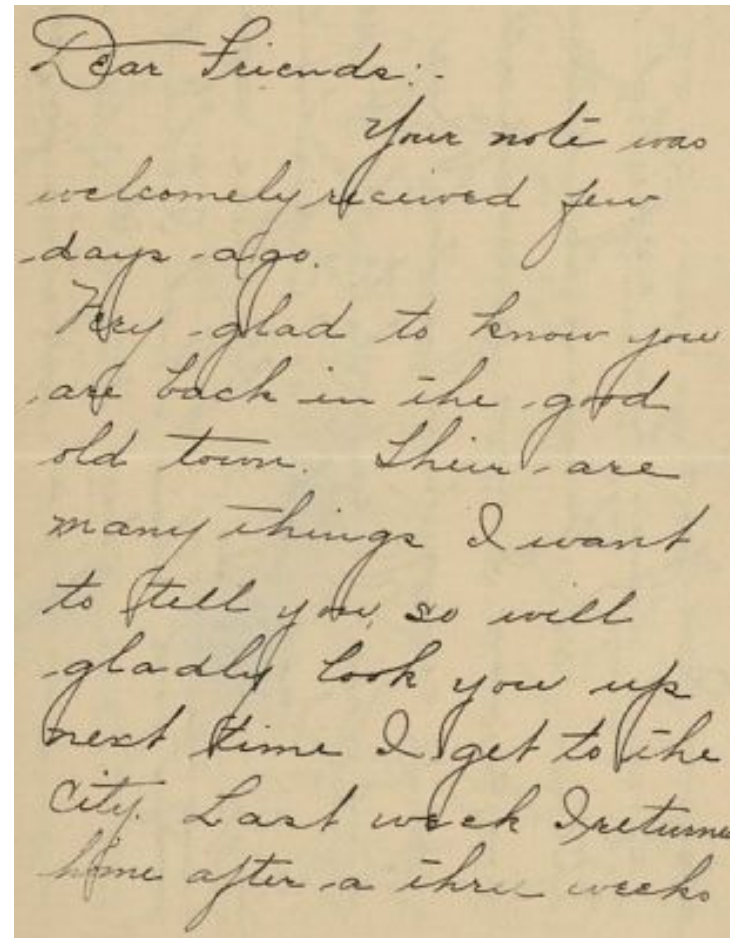 Dear Friends:-
Your note was
welcomely received few
days ago.
Very glad to know you
are back in the good
old town. Their are
many things I want
to tell you, so will
gladly look you up
next time I get to the
city. Last week I returne
home after a three weeks